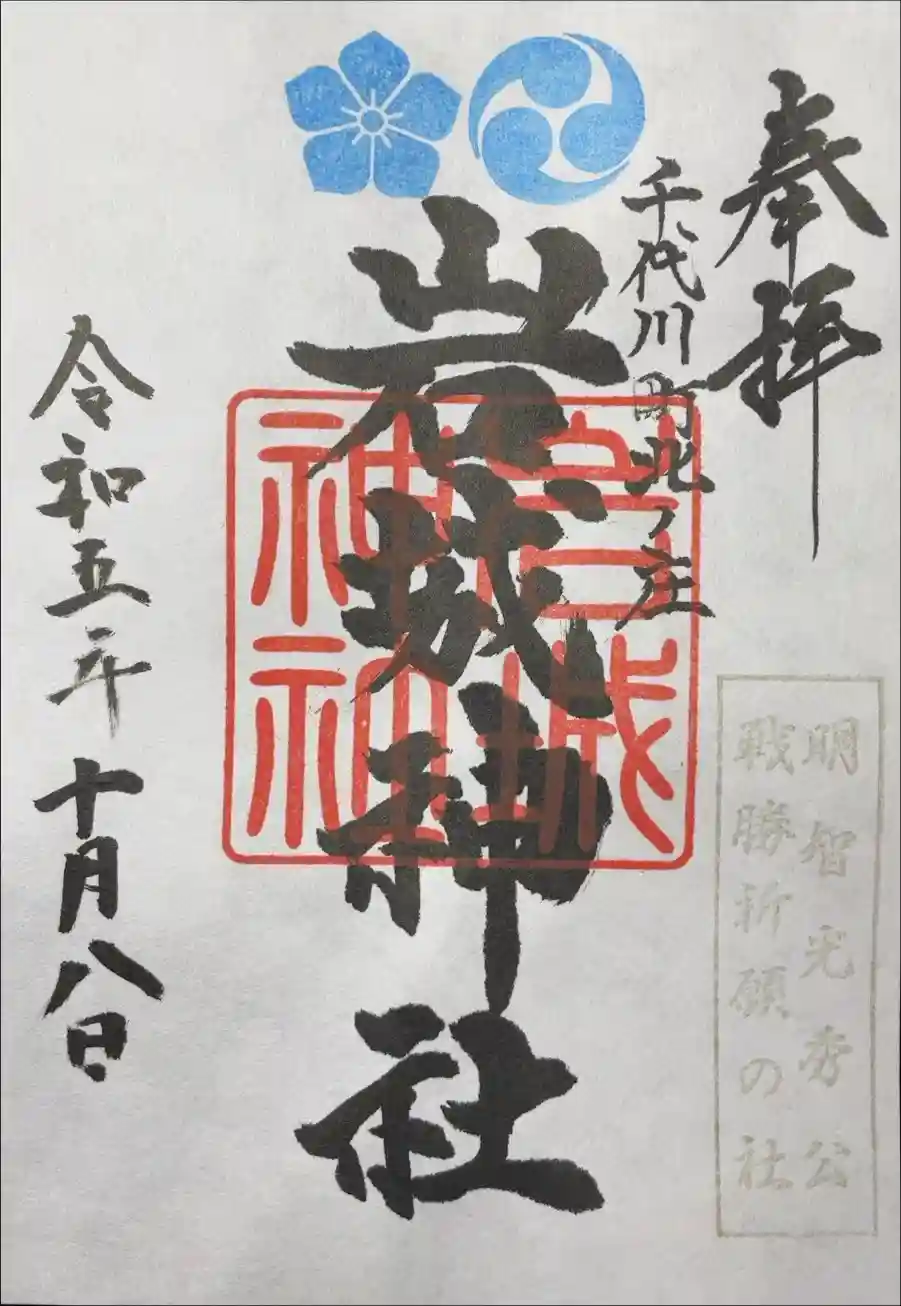 奉拝
明智光秀公
戦勝祈願の社
千代川町北ノ庄
岩城神社
令和五年十月八日